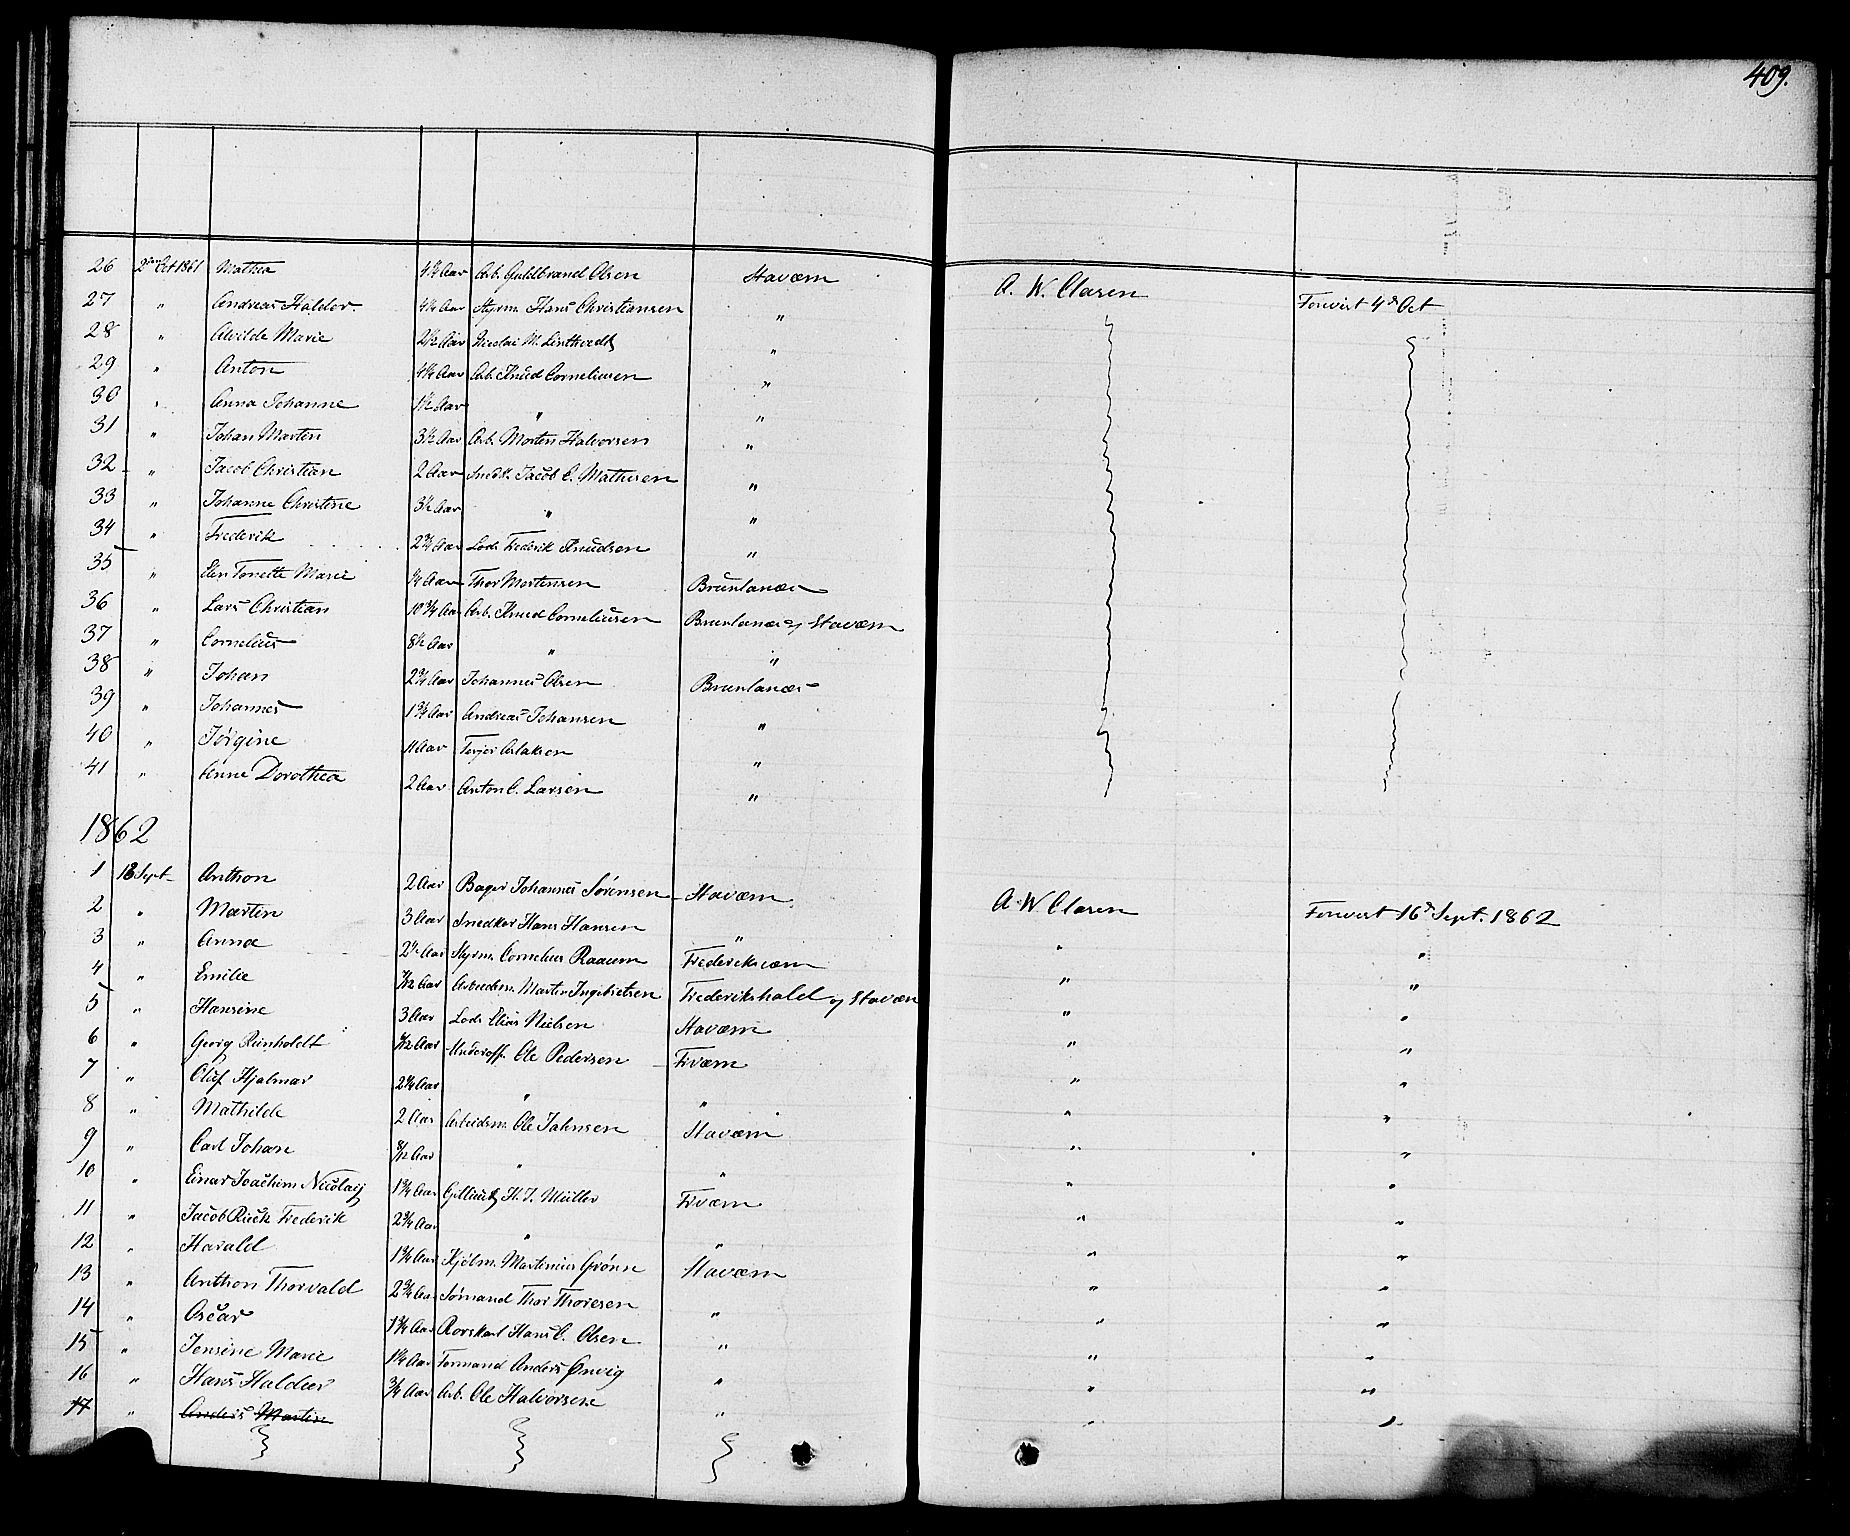 409.
26 2den Oct 1861 Mathea 4½ Aar Arb. Guldbrand Olsen Staværn A. W. Clasen Forevist 4de Oct
27 " Andreas Haldor. 4¼ Aar Styrm. Hans Christiansen "
28 " Alvilde Marie 2½ Aar Nicolai M. Linthvedt "
29 " Anton 4¼ Aar Arb. Knud Corneliusen "
30 " Anna Johanne 1½ Aar " "
31 " Johan Marten 3½ Aar Arb. Morten Halvorsen "
32 " Jacob Christian 2 Aar Snedk. Jacob C. Mathisen "
33 " Johanne Christine 3½ Aar " "
34 " Frederik 2¾ Aar Lods Frederik Knudsen "
35 " Elen Tonette Marie ¼ Aar Thor Mortensen Brunlanæs
36 " Lars Christian 10¾ Aar Arb. Knud Corneliusen Brunlanæs og Staværn
37 " Cornelius 8½ Aar " "
38 " Johan 2¾ Aar Johannes Olsen Brunlanæs
39 " Johannes 1¾ Aar Andreas Johansen "
40 " Jørgine 11 Aar Terjer Aslaksen "
41 " Anne Dorothea 2 Aar Anton C. Larsen "
1862
1 18 Sept Anthon 2 Aar Bager Johannes Sørensen Staværn A. W. Clasen Forevist 16de Sept. 1862
2 " Martin 3 Aar Snedker Hans Hansen " " "
3 " Anna 2¼ Aar Styrm. Cornelius Raaum Frederiksværn " "
4 " Emilie 7/12 Aar Arbeidsm. Martin Ingebretsen Frederikshald og Staværn " "
5 " Hansine 3 Aar Lods Elias Nielsen Staværn " "
6 " Georg Reinholdt 6/12 Aar Underoff. Ole Pedersen Frværn " "
7 " Oluf Hjalmar 2¼ Aar " " " "
8 " Mathilde 2 Aar Arbeidsm. Ole Jahnsen Staværn " "
9 " Carl Johan 8/12 Aar " " " "
10 " Einar Joachim Nicolay 1¾ Aar H. J. Müller Frværn " "
11 " Jacob Rieck Frederik 2¾ Aar " " " "
12 " Harald 1¾ Aar Kjøbm. Martinius Grønn Staværn " "
13 " Anthon Thorvald 2¾ Aar Sømand Thor Thoresen " " "
14 " Oscar 1¾ Aar Rorskarl Hans C. Olsen " " "
15 " Jensine Marie 1¼ Aar Tormand Anders Ønvig " " "
16 " Hans Halder ¾ Aar Arb. Ole Halvorsen " " "
17 " Anders Martin